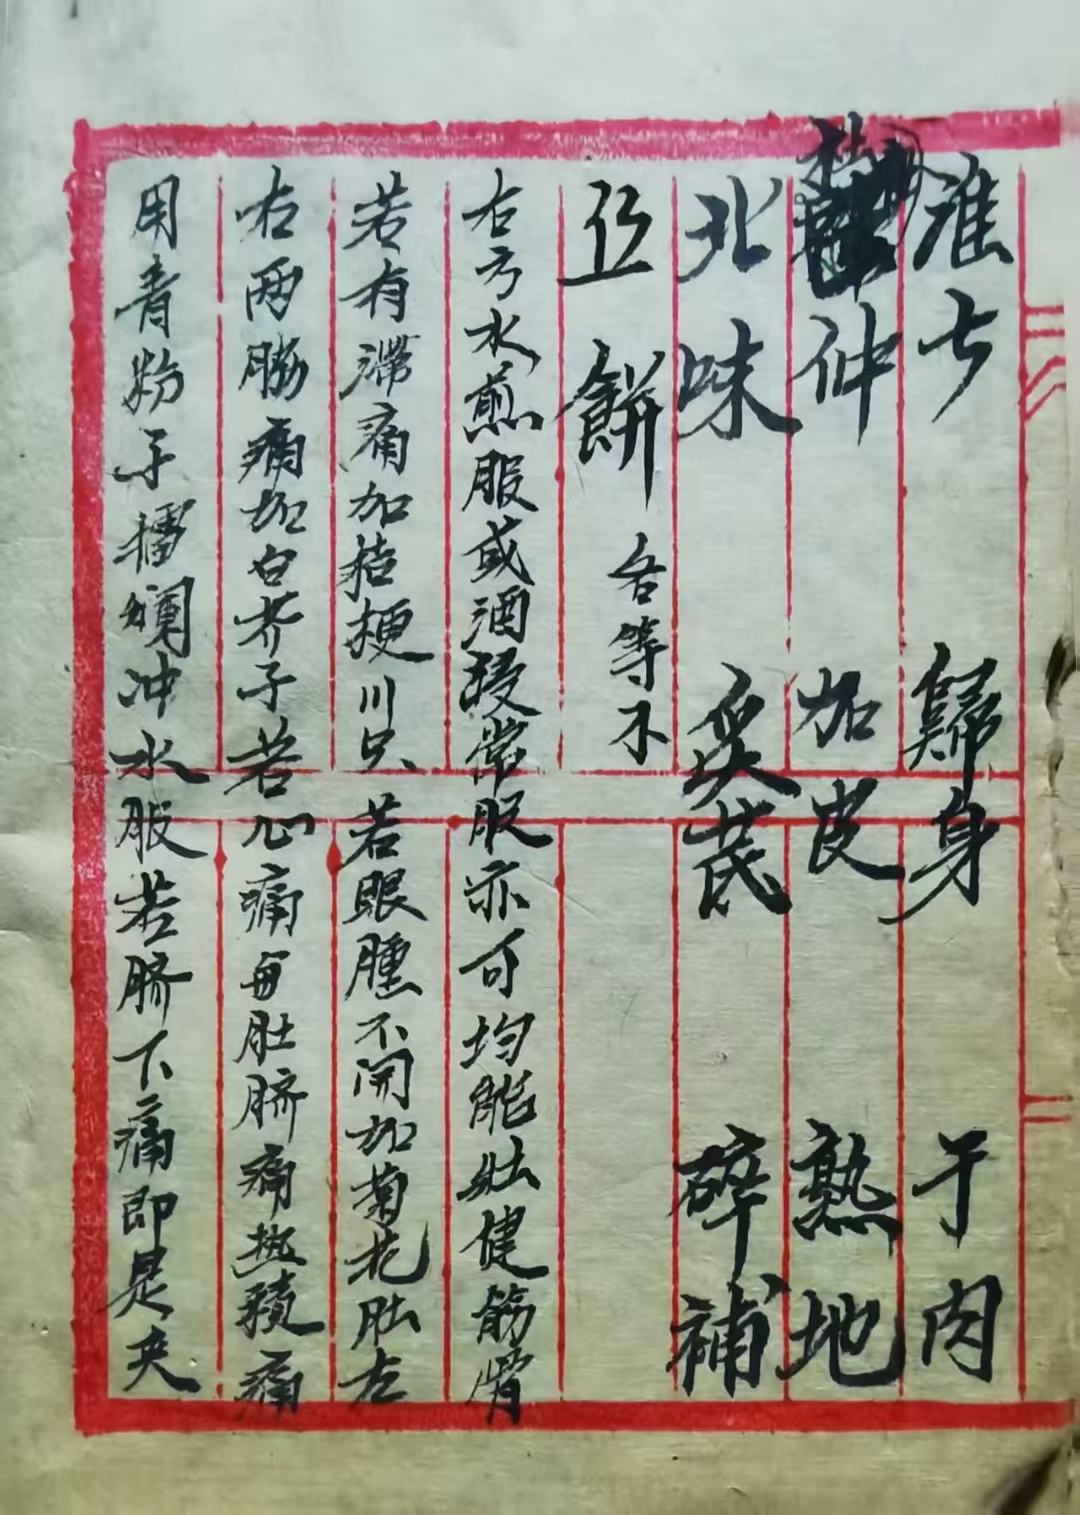 淮七 歸身 于肉
杜仲 加皮 熟地
北味 炙芪 碎補
丑餅 各等不
右方水煎服或酒浸常服亦可均能壯健筋骨
若有滞痛加桔梗川只 若眼腫不開加菊花肚左
右两脇痛加白芥子若心痛每肚脐痛热積痛
用青粉子擂爛冲水服若脐下痛即是夹